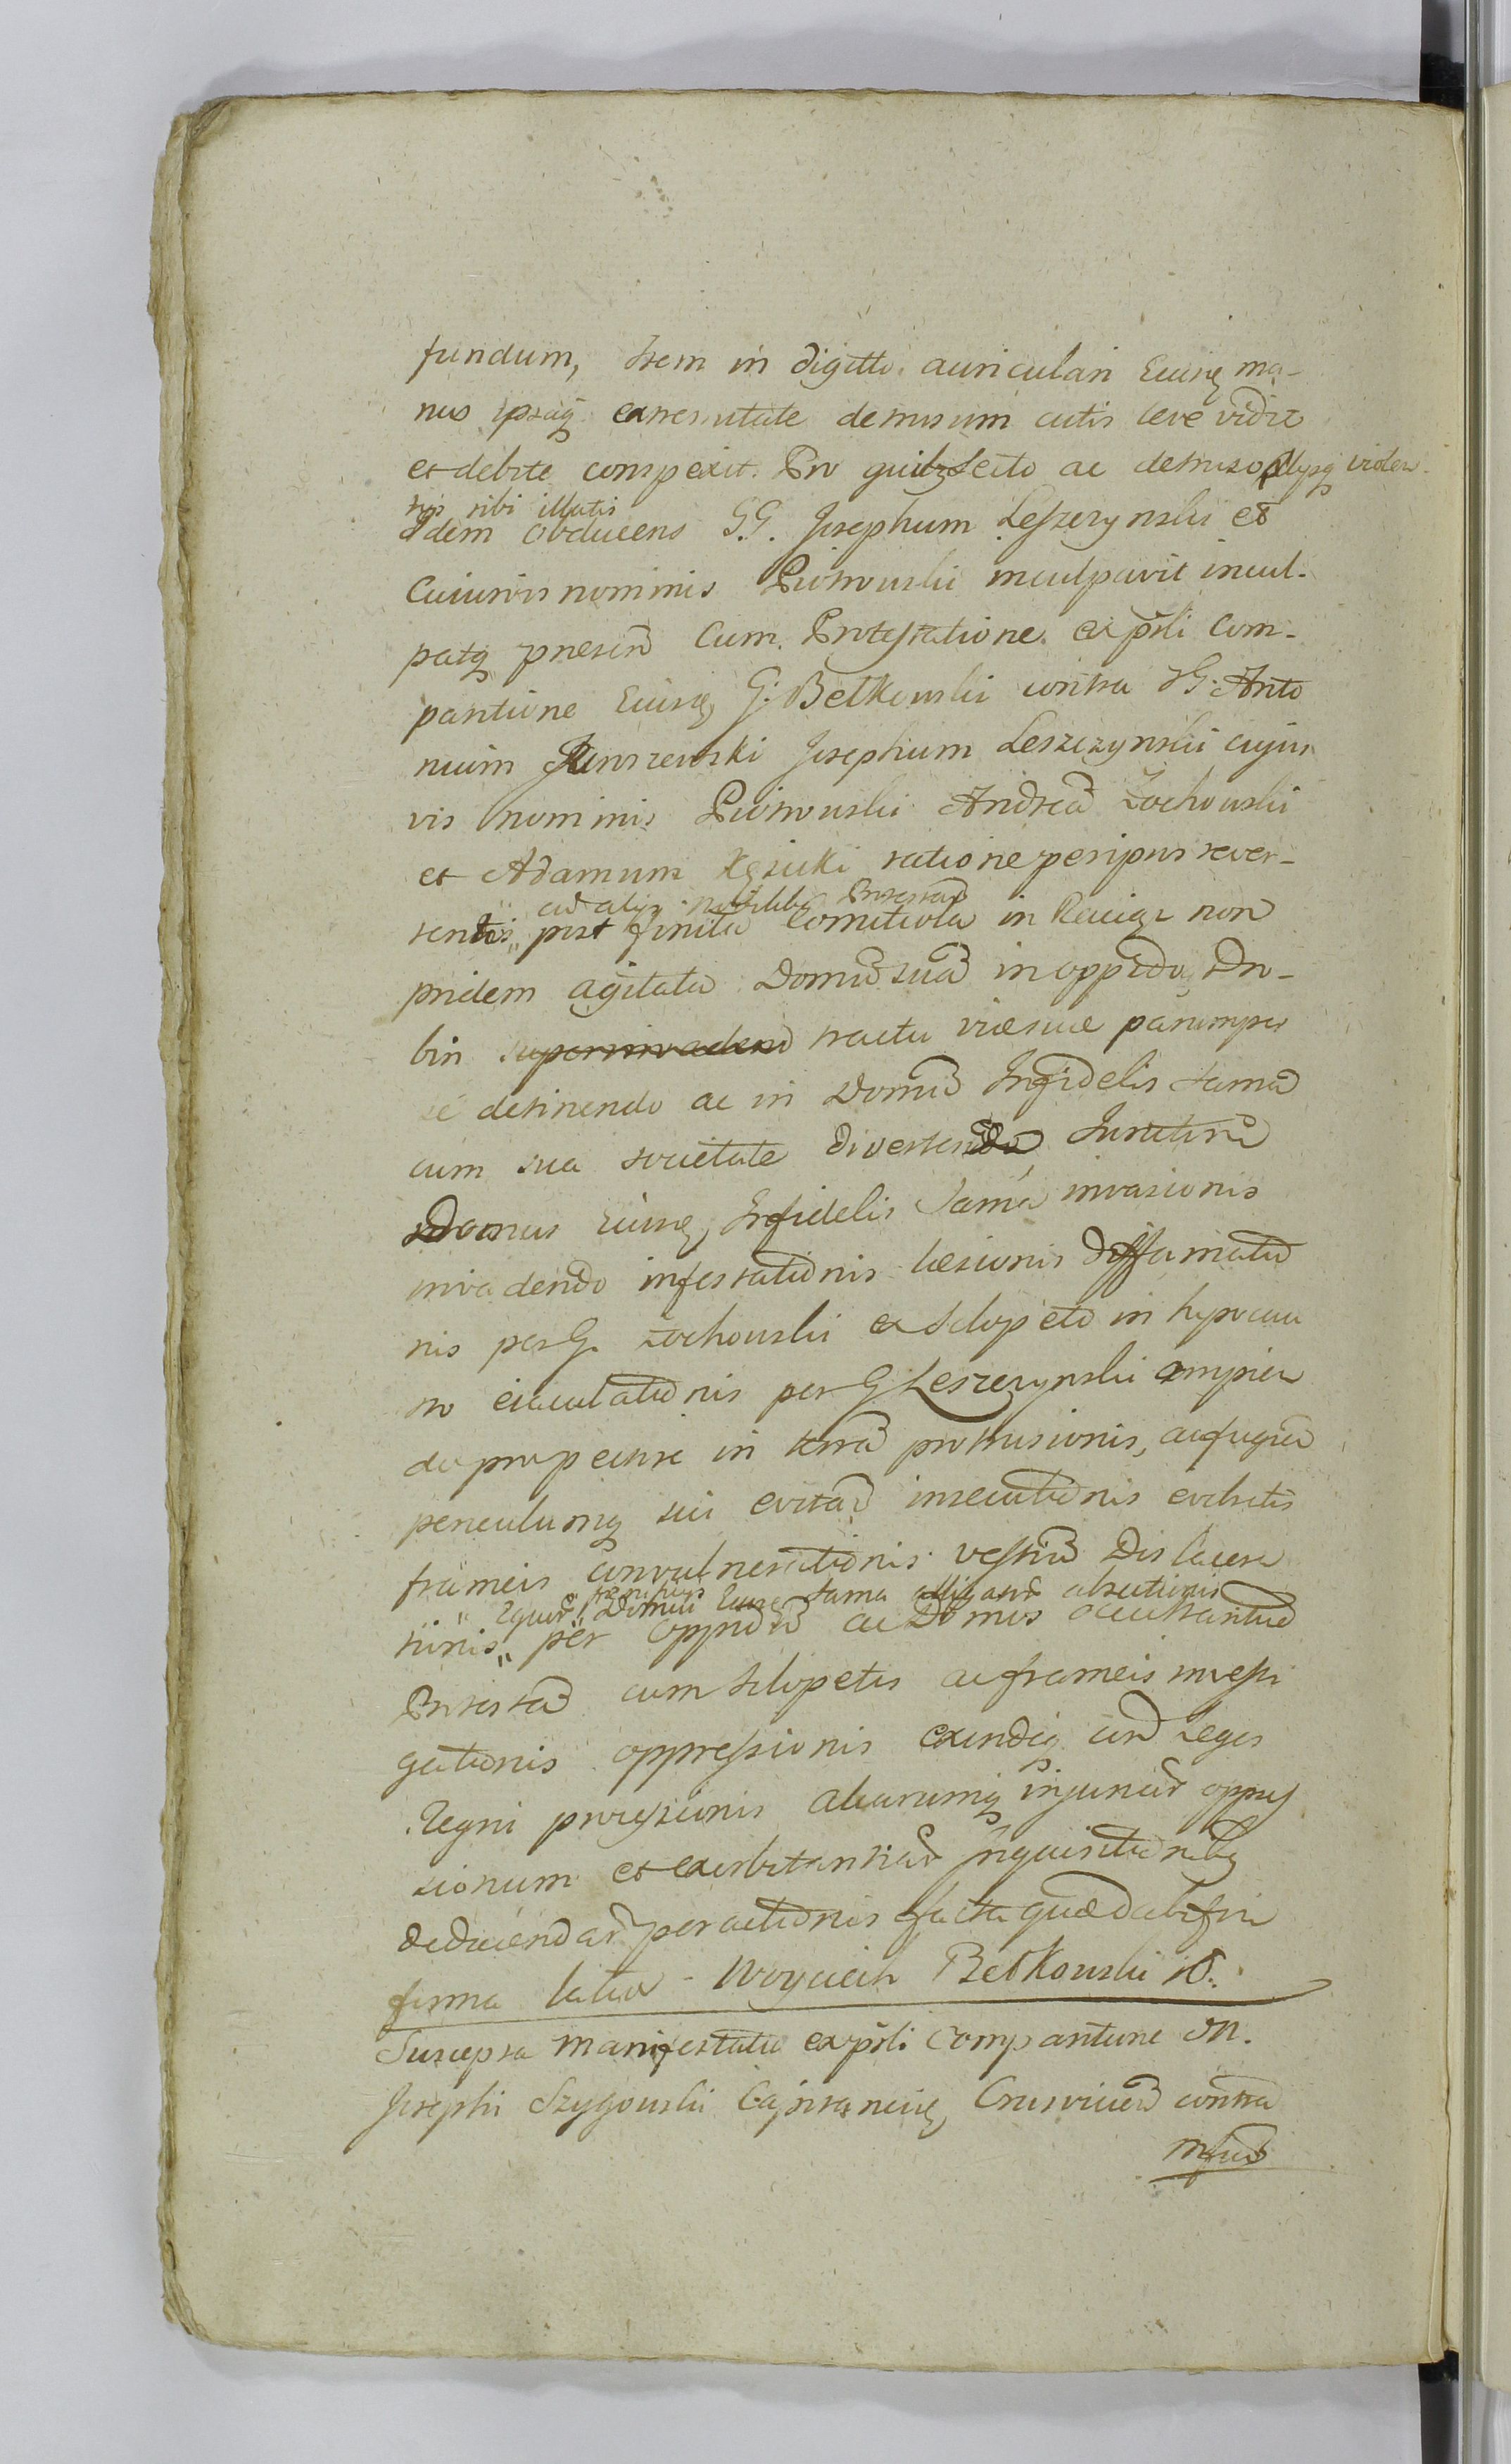 fundum, Item in digitto auriculari Eiusq ma-
nus ipsaq exremitate demisum cutis leve vidit
et debite conspexit. Pro quibz Scito ac detruso alysq violen-
tys sibi illatis
idem obducens G.G. Josephum Leszczynski et
Cuiusvis nominis Piotrowski inculpavit incul-
patq presend Cum Protestatione ex psli Com-
paritione Eiusq G. Betkowski contra G. Anto
nium Juroszewski Josephum Leszczynski cujus
vis nominis Piotrowski Andread Zochowski
et Adamum Kęsicki ratione per ipsos rever-
cu alys nobilibq Protestand
tentes post finita Comitiola in Raciąz non
pridem agitata Domu sua in oppido Dro-
bin superinvadend tractu viæ suæ parumper
se detinendo ac in Domu Infidelis Jama
cum sua societate divertendo
Domus Eiusq Infidelis Jama invasionis
invadendo infestationis læsionis diffamatio
nis per G. Zochowski ex Sclopeto in hypocau
sto eiaculationis per G Leszczynski
in terra protrusionis, ac fugiend
periculumq sui evitand insecutionis evibratis
frameis convulnerationis vestium Dis lacera
Domini Eiusq Jama alligand
tionis per oppidu ac Domos occultantiud
Protestand cum Sclopetis ac frameis investi
gationis oppressionis exindeq Leges
Regni progressionis aliarumq injuriar oppres
sionum et exorbitantiar Inquisitionibq
deducendar peractionis facta
firma latio - Woyciech Betkowski
Suscepta Manifestatio ex psli Comparitione M.
Josephi Szygowski Capitaneiq Crusvicien contra